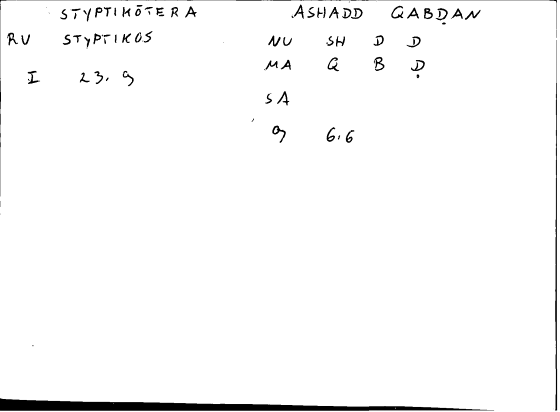 STYPTIKŌTERA ASHADD QABḌAN
RV STYPTIKOS NU SH D D
MA Q B Ḍ
I 23. 9
SA
9 6.6